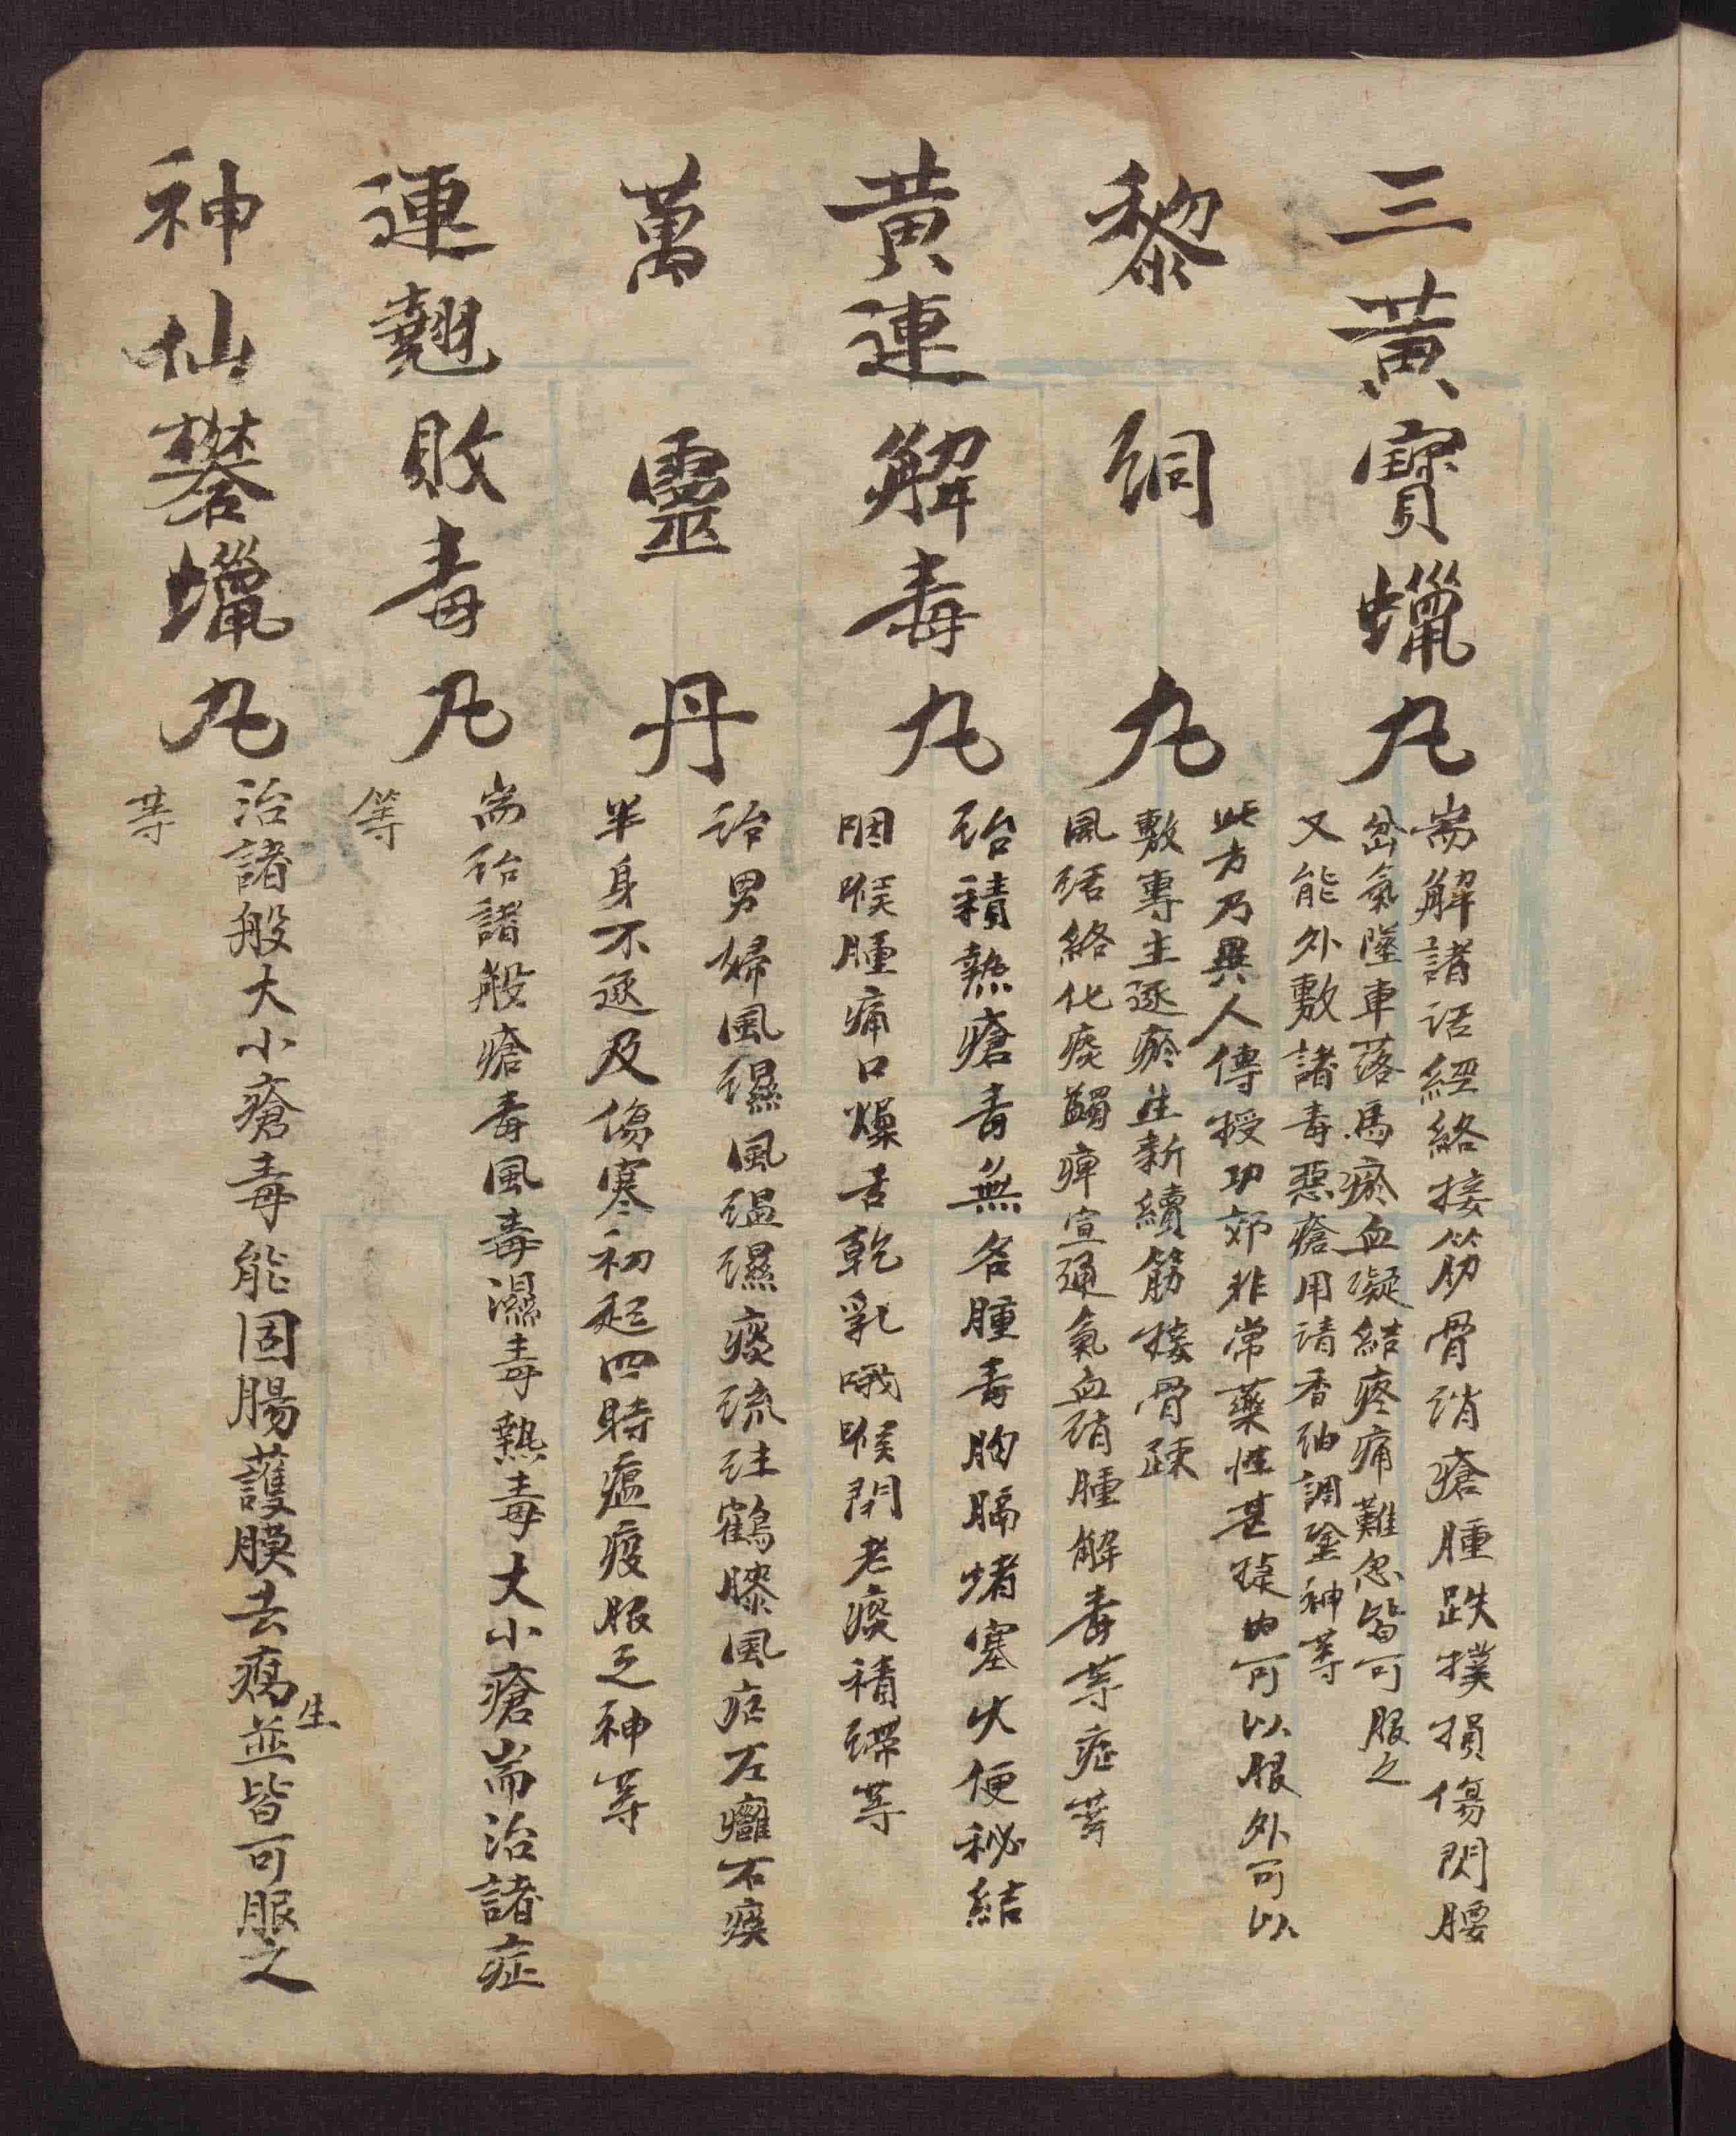 三黃寶蠟丸
耑解諸活經絡接筋骨消瘡腫跌撲損傷閃腰
岔氣墜車落馬瘀血凝結疼痛難忍皆可服之
又能外敷諸毒惡瘡用清香油調塗神等
黎 絧 丸
此方乃異人傳授功効非常藥性甚猛內可以服外可以
敷專主逐瘀生新續筋接骨疎
風活絡化痰蠲痺宣通氣血消腫解毒等症等
黃連解毒丸
治積熱瘡毒無名腫毒胸膈堵塞火便秘結
咽喉腫痛口燥舌乾乳哦喉閉老痰積滯等
萬 靈 丹
治男婦風濕風溫濕痰流注鶴膝風左癱右瘓
半身不遂及傷寒初起四時瘟疫服之神等
連翹敗毒丸
耑治諸般瘡毒風毒濕毒熱毒大小瘡耑治諸症
等
神仙礬蠟丸
治諸般大小瘡毒能固腸護膜去病生並皆可服之
等